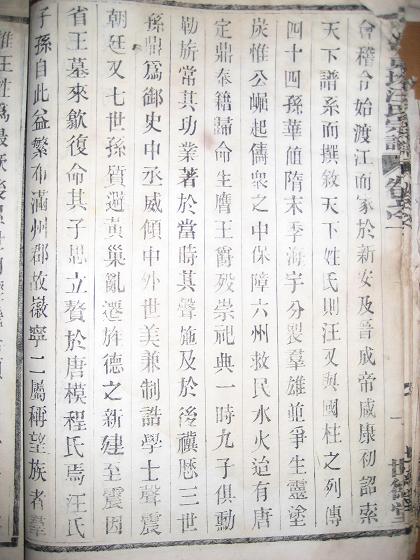 會稽令始渡江而家於新安及晉成帝咸康初詔索
天下譜系而撰敘天下姓氏則汪又與國柱之列傳
四十四孫華值隋末季海宇分裂羣雄並爭生靈塗
炭惟公崛起儔衆之中保障六州救民水火迨有唐
定鼎奉籍歸命生膺王爵歿崇祀典一時九子俱動
勒旂常其功業著於當時其聲施及於後禩歷三世
孫鼎爲御史中丞威傾中外世美兼制誥學士聲震
朝廷又七世孫質避黃巢亂遷旌德之新建至震因
省王墓來歙復命其子思立贅於唐模程氏焉汪氏
子孫自此益繁布滿州郡故徽寧二屬稱望族者羣
推王姓爲最